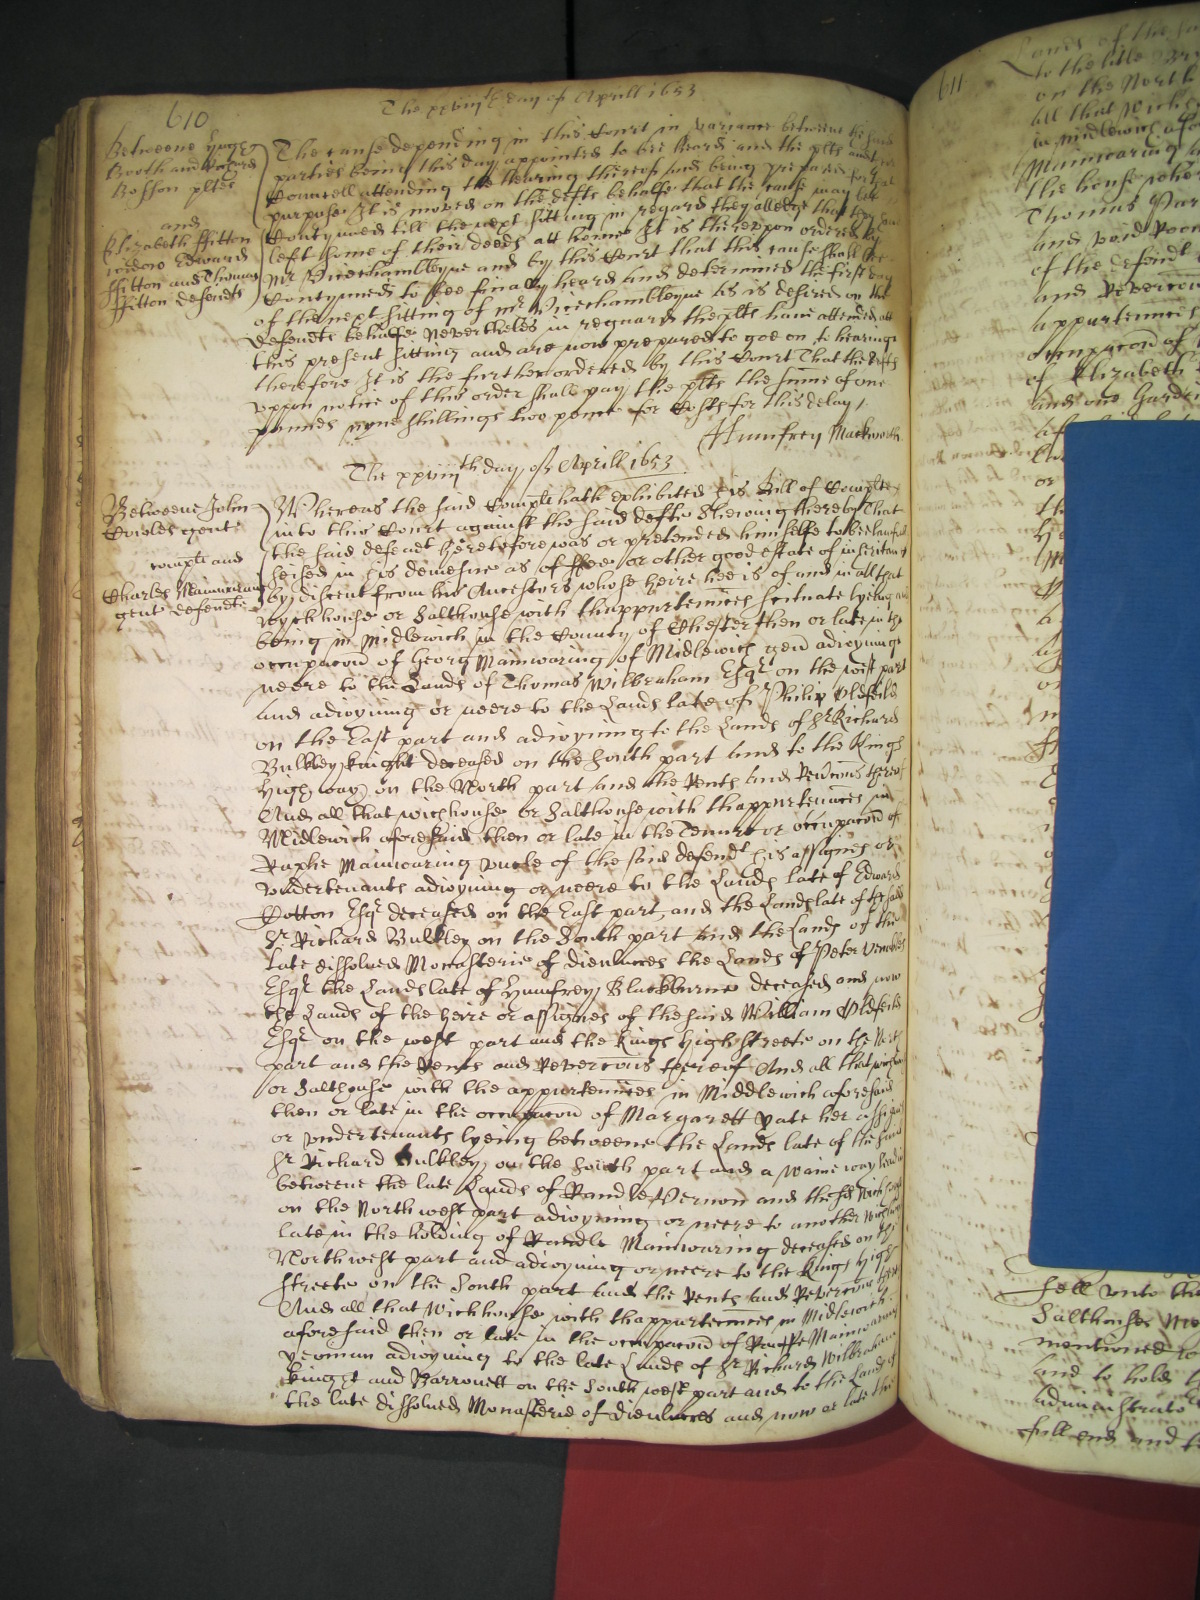 610
The xxviijth day of Aprill 1653
Betweene Hugh
Booth and Richard
Bosson pltes
and
Elizabeth ffitton
widow Edward
ffitton and Thomas
ffitton defendts
The cause depending in this Court in variance betweene the said
parties being this day appointed to bee heard and the plts and
Councell attending the hearing thereof and being prepared for that
purpose It is moved on the defts behalfe that the cause may bee
Contynued till the next sitting in regard they alledge that they have
left some of their deeds att home It is therevpon ordered by
Mr Vicechamblayne and by this Court that this cause shall bee
Contynued to bee finally heard and determined the first day
of the next sitting of mr Vicechamblayne as is desired on the
defendts behalfe Neverthelес in reguard the plts have attended att
this present sitting and are now prepared to goe on to hearinge
therefore It is the further ordered by this Court That the defts
vppon notice of this order shall pay the plts the summe of one
pounds nyne shillings two pence for Costs for this delay /
Humfrey Mackworth
The xxviijth day of Aprill 1653
Betweene John
Cowles gent
complt and
Charles Mainwaring
gent defendte
Whereas the said Complt hath exhibited his Bill of Complte
into this Court against the said defte Shewing thereby That
the said defendt heretofore was or pretended himselfe to bee lawfully
seised in his demesne as of ffee or other good estate of inheritance
by discent from his Ancestors whose heire hee is of and in all that
wychhouse or Salthouse with thappurtenñces scituate lyeing and
being in Midlewich in the County of Chester then or late in the
occupacoñ of Georg Mainwaring of Midlewich gent adioyninge
neere to the Lands of Thomas Wilbraham Esqr on the west part
and adioyning or neere to the Lands late of Philip Oldfeild
on the East part and adioyning to the Lands of Sr Richard
Bulkley knight deceased on the South part And to the Kings
high way on the North part And the Rents And Revercoñs thereof
And all that wichhouse or Salthouse with thappurtenñces in
Midlewich aforesaid then or late in the Tenure or occupacoñ of
Raphe Mainwaring vncle of the said defendt his assignes or
vndertenants adioyning or neere to the Lands late of Edward
Dotton Esqr deceased on the East part, and the Lands late of the said
Sr Richard Bulkley on the South part And the Lands of the
late dissolved Monasterie of Dieulacres the Lands of Peter Venables
Esqr the Lands late of Humfrey Blackburne deceased and now
the Lands of the heire or assignes of the said William Oldfeild
Esqr on the west part and the Kings high Streete on the North
part and the Rents and Revercoñs thereof And all that wichhouse
or Salthouse with the appurtenñces in Middlewich aforesaid
then or late in the occupacoñ of Margarett Yate her assignes
or vndertenants lyeing betweene the Lands late of the said
Sr Richard Bulkley on the South part and a waine way leading
betweene the late Lands of Randle Vernon and the sd Wich house
on the North west part adioyning or neere to another Wichhouse
late in the holding of Randle Mainwaring deceased on the
North west part and adioyning or neere to the Kings high
streete on the South part And the Rents And Revercoñs thereof
And all that Wichhouse with thappurtenñces in Midlewich
aforesaid then or late in the occupacoñ of Raphe Mainwaring
yeoman adioyning to the late Lands of Sr Richard Wilbraham
knight and Barronett on the South west part and to the Lands of
the late dissolved Monasterie of Dieulacres and now or late the
611
Lands of the
to the litle
on the North
All that Wich
in Midlewich afore
Mainwaring
the house
Thomas
And void Roome
of the defendt
and Revercoñs
Appurtenñces
occupacoñ of
of Elizabeth
and one Garden
fell vnto the
Salthouse
mentioned
And to hold
Administrators
full end and